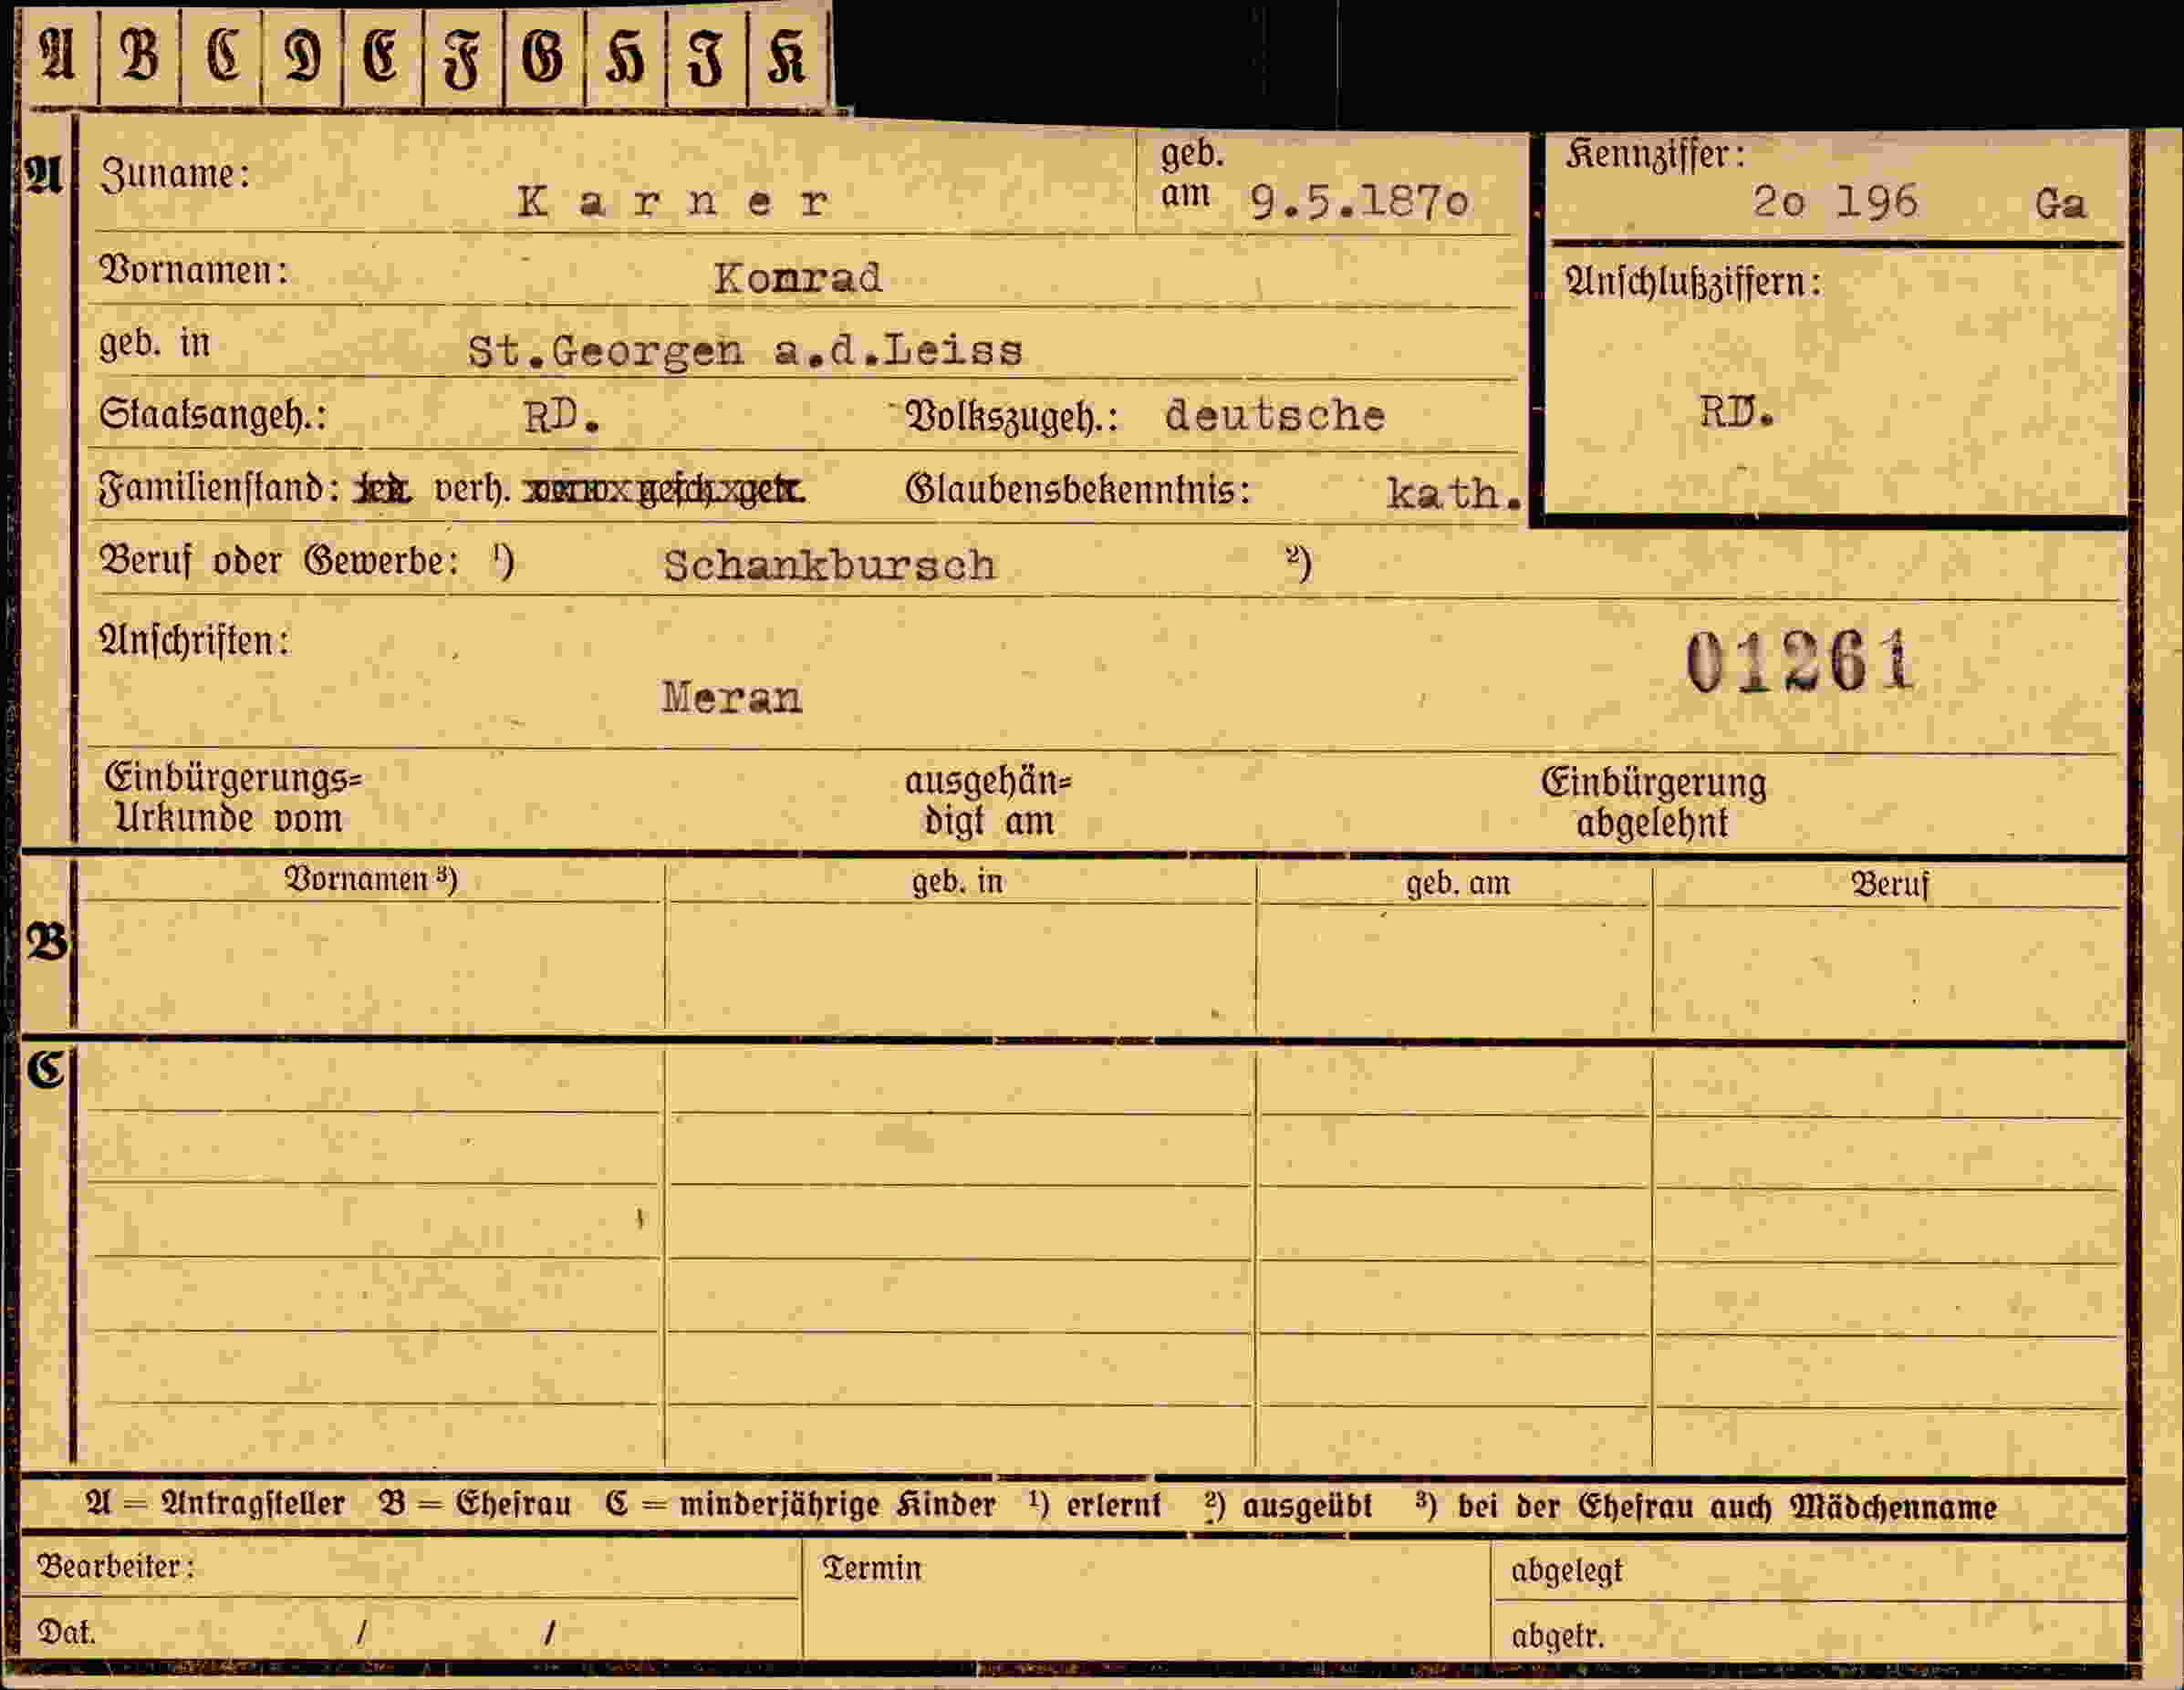 A B C D E F G H I K
A Zuname: K a r n e r geb. am 9.5.187o Kennziffer: 2o 196 Ga
Vornamen: Konrad Anschlußziffern:
geb. in St.Georgen a.d.Leiss
Staatsangeh.: RD. Volkszugeh.: deutsche RD.
Familienstand: led. verh. verw. gesch. getr. Glaubensbekenntnis: kath.
Beruf oder Gewerbe: ¹) Schankbursch ²)
Anschriften: 01261
Meran
Einbürgerungs= ausgehän= Einbürgerung
Urkunde vom digt am abgelehnt
Vornamen ³) geb. in geb. am Beruf
B
C
A = Antragsteller B = Ehefrau C = minderjährige Kinder ¹) erlernt ²) ausgeübt ³) bei der Ehefrau auch Mädchenname
Bearbeiter: Termin abgelegt
Dat. / / abgetr.